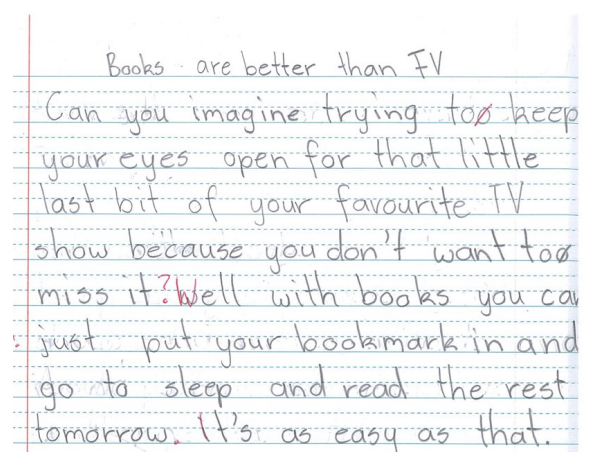 Books are better than TV
Can you imagine trying to keep
your eyes open for that little
last bit of your favourite TV
show because you don't want to
miss it? Well with books you can
just put your bookmark in and
go to sleep and read the rest
tomorrow. It's as easy as that.